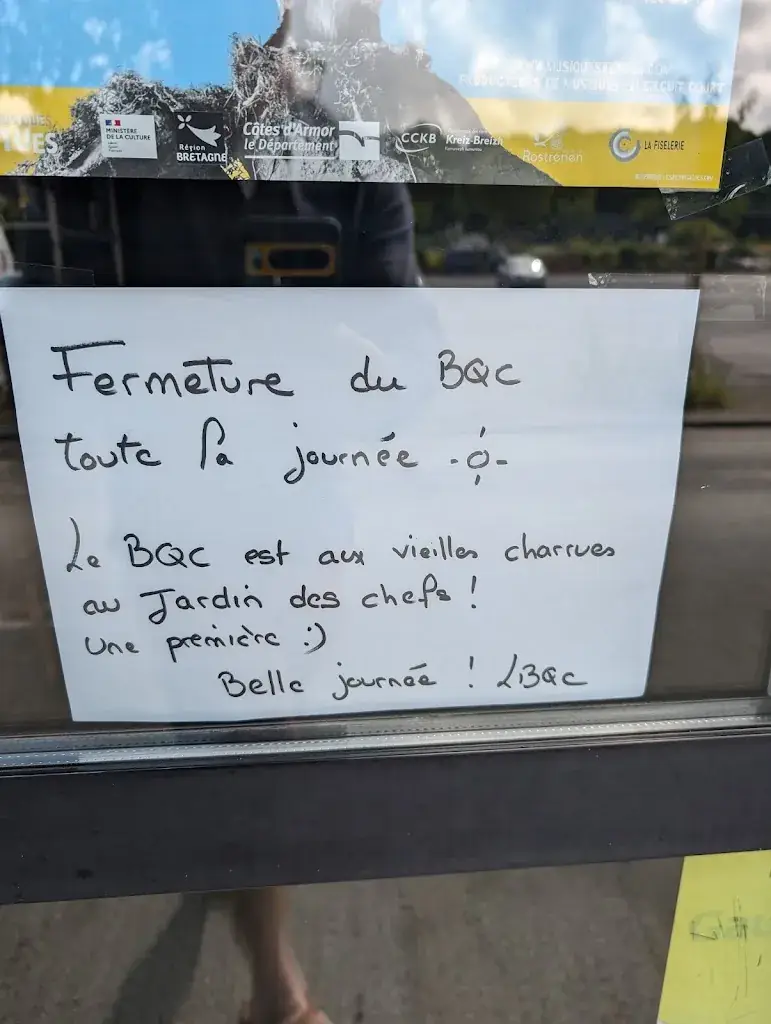 MINISTÈRE
DE LA CULTURE
Région
BRETAGNE
Côtes d'Armor
le Département
CCKB
Kreiz-Breizh
Rostrenen
LA FISELERIE
Fermeture du BQC
toute la journée
Le BQC est aux vieilles charrues
au Jardin des chefs !
une première :)
Belle journée ! LBQC